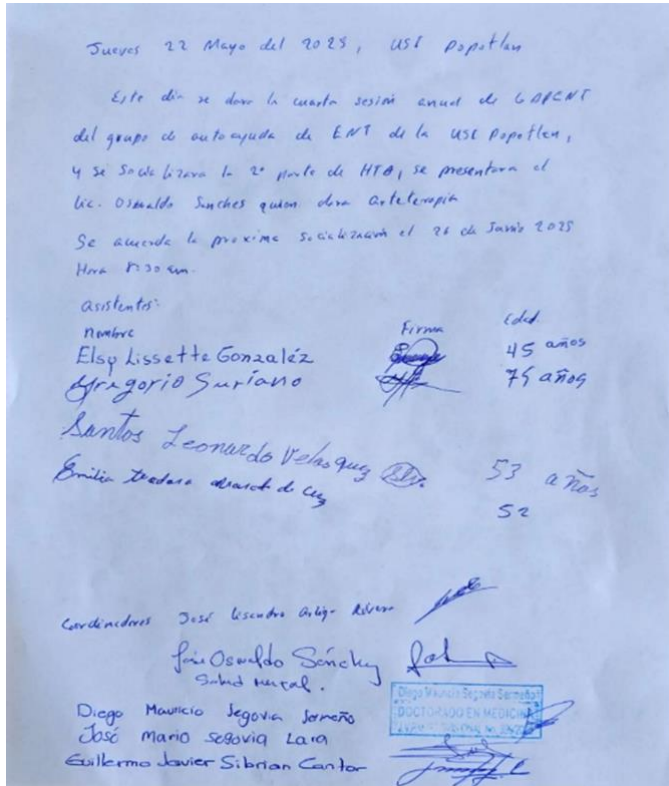 Jueves 22 Mayo del 2025, USI Popotlan
Este dia se dara la cuarta sesión anual de GAPENT
del grupo de autoayuda de ENT de la USI Popotlan,
y se Socializara la 2ª parte de HTA, se presentara el
Lic. Oswaldo Sanches quien dara arteterapia
Se acuerda la proxima Socialización el 26 de Junio 2025
Hora 8:30 am.
asistentes:
nombre Firma Edad.
Elsy Lissette Gonzaléz 45 años
Gregorio Suriano 75 años
Santos Leonardo Velasquez 53 años
Emilia Teodora de Cruz
52
Coordinadores José Lisandro Rivera
José Oswaldo Sánchez
Salud Mental.
Diego Mauricio Segovia Sermeño
DOCTORADO EN MEDICINA
Diego Mauricio Segovia Sermeño
José mario segovia Lara
Guillermo Javier Sibrian Cantor